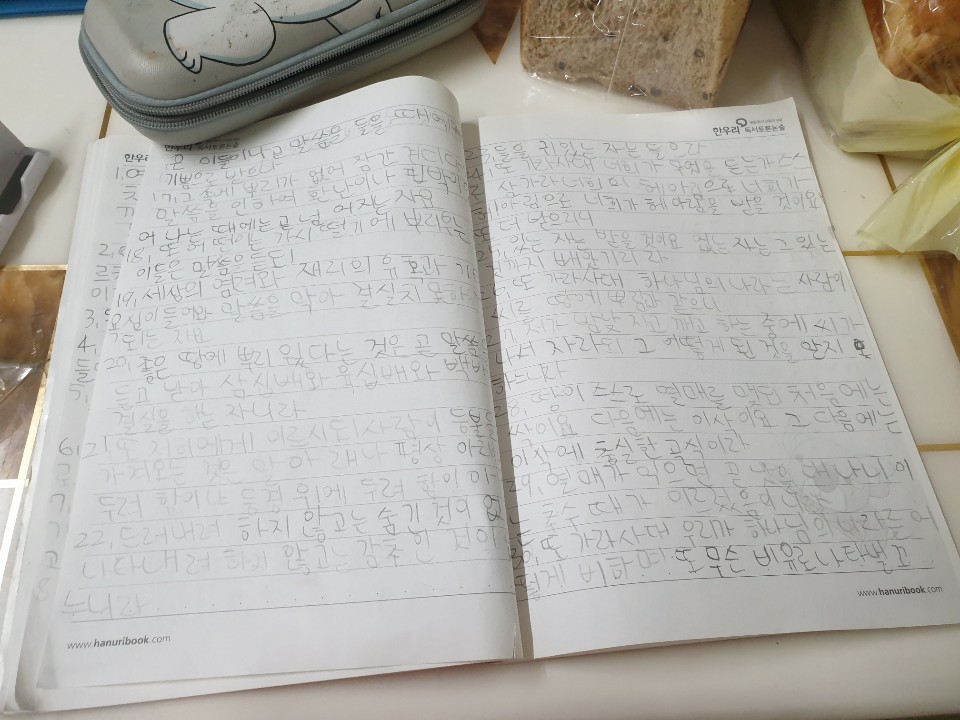 한우리 독서토론논술
곧 이들이니 곧 말씀을 들을 때에
기쁨으로 받으나
17, 그 속에 뿌리가 없어 잠간 견디다
말씀을 인하여 환난이나 핍박이
어 나는 때에는 곧 넘어지는 자요
18, 또 어떤 이는 가시떨기에 뿌리우는
이들은 말씀을 듣되
19, 세상의 염려와 재리의 유혹과 기타
욕심이 들어와 말씀을 막아 결실치 못하
되는 자요
20, 좋은 땅에 뿌리웠다는 것은 곧 말씀
듣고 받아 삼십배와 육십배와 백배
결실을 하는 자니라
21 또 저희에게 이르시되 사람이 등불을
가져오는 것은 말 아래나 평상 아래
두려 함이냐 등경 위에 두려 함이 아
22, 드러내려 하지 않고는 숨긴 것이 없
나타내려 하지 않고는 감추인 것이
느니라
www.hanuribook.com
한우리 독서토론논술
들을 귀 있는 자는 들으라
또 가라사대 너희가 무엇을 듣는가 스스
삼가라 너희의 헤아림으로 너희가
헤아림으로 너희가 헤아림을 받을 것이요
또 더 받으리니
있는 자는 받을 것이요 없는 자는 그 있는
것까지 빼앗기리라
또 가라사대 하나님의 나라는 사람이
씨를 땅에 뿌림과 같으니
저가 밤낮 자고 깨고 하는 중에 씨가
나서 자라되 그 어떻게 된 것을 알지 못
하느니라
땅이 스스로 열매를 맺되 처음에는
싹이요 다음에는 이삭이요 그 다음에는
이삭에 충실한 곡식이라
29, 열매가 익으면 곧 낫을 대나니 이
는 추수 때가 이르렀음이니라
30, 또 가라사대 우리가 하나님의 나라를 어
떻게 비하며 또 무슨 비유로 나타낼고
www.hanuribook.com